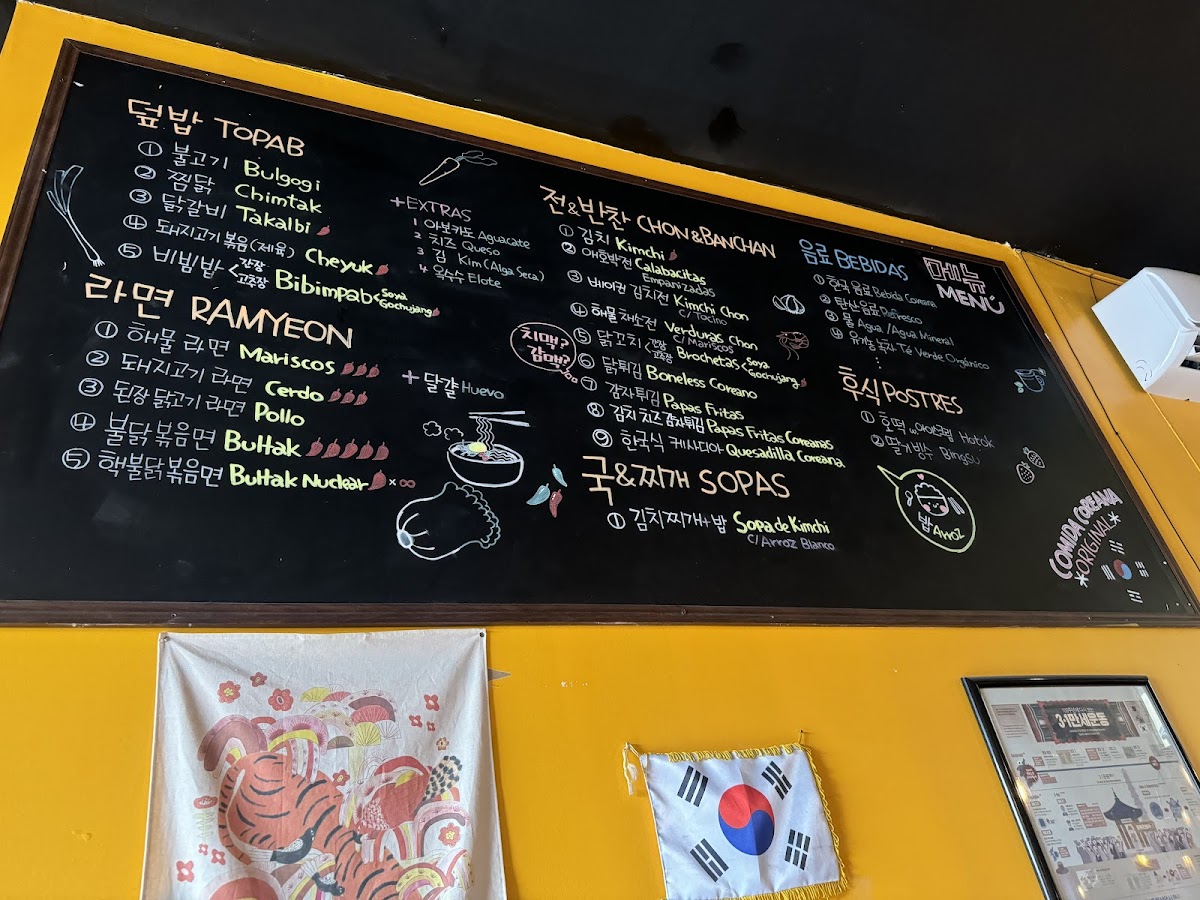 덮밥 TOPAB
① 불고기 Bulgogi
② 찜닭 Chimtak
③ 닭갈비 Takalbi
④ 돼지고기 볶음(제육) Cheyuk
⑤ 비빔밥 < 간장 고추장 Bibimpab < Soya Gochujang
라면 RAMYEON
① 해물 라면 Mariscos
② 돼지고기 라면 Cerdo
③ 된장 닭고기 라면 Pollo
④ 불닭 볶음면 Bultak
⑤ 핵불닭 볶음면 Bultak Nuclear × ∞
+EXTRAS
1 아보카도 Aguacate
2 치즈 Queso
3 김 Kim (Alga Seca)
4 옥수수 Elote
+ 달걀 Huevo
치맥?
감맥?
전&반찬 CHON & BANCHAN
① 김치 Kimchi
② 애호박전 Calabacitas
Empanizadas
③ 베이컨 김치전 Kimchi Chon
C/Tocino
④ 해물 채소전 Verduras Chon
C/Mariscos
⑤ 닭꼬치 < 간장 고추장 Brochetas < Soya Gochujang
⑥ 닭튀김 Boneless Coreano
⑦ 감자튀김 Papas Fritas
⑧ 김치 치즈 감자튀김 Papas Fritas Coreanas
⑨ 한국식 케사디아 Quesadilla Coreana
국&찌개 SOPAS
① 김치찌개+밥 Sopa de Kimchi
C/Arroz Blanco
메뉴
MENÚ
음료 BEBIDAS
① 한국 음료 Bebida Coreana
② 탄산음료 Refresco
③ 물 Agua / Agua Mineral
④ 유기농 녹차 Té Verde Orgánico
후식 POSTRES
① 호떡 w아이스크림 Hotok
② 딸기빙수 Bingsu
밥 Arroz
COMIDA COREANA
*ORIGINAL*
3·1만세운동